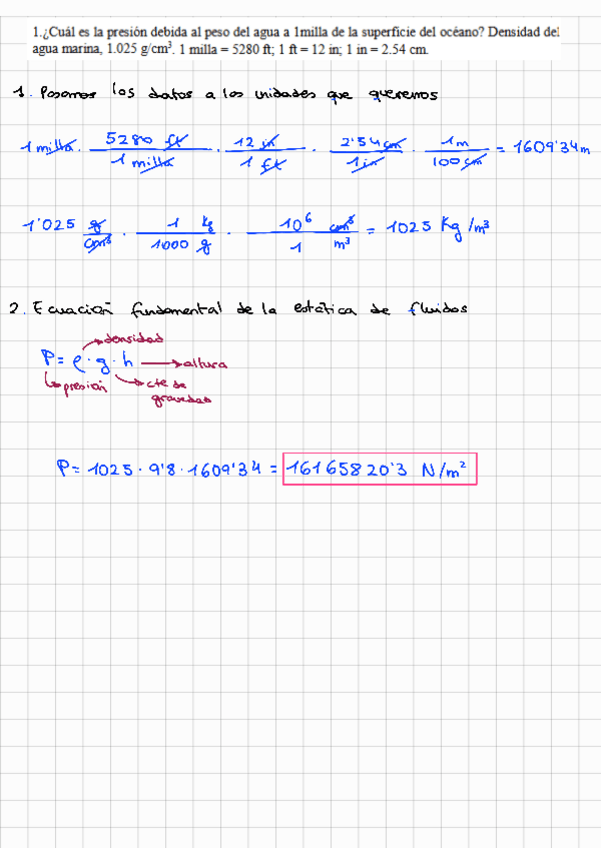 1.¿Cuál es la presión debida al peso del agua a 1milla de la superficie del océano? Densidad del
agua marina, 1.025 g/cm³. 1 milla = 5280 ft; 1 ft = 12 in; 1 in = 2.54 cm.
1. Pasamos los datos a las unidades que queremos
1 milla · 5280 ft / 1 milla · 12 in / 1 ft · 2'54 cm / 1 in · 1m / 100 cm = 1609'34m
1'025 g/cm³ · 1 kg / 1000 g · 10⁶ cm³ / 1 m³ = 1025 Kg/m³
2. Ecuación fundamental de la estática de fluidos
densidad
P = ρ · g · h → altura
presión cte de
gravedad
P = 1025 · 9'8 · 1609'34 = 16165820'3 N/m²